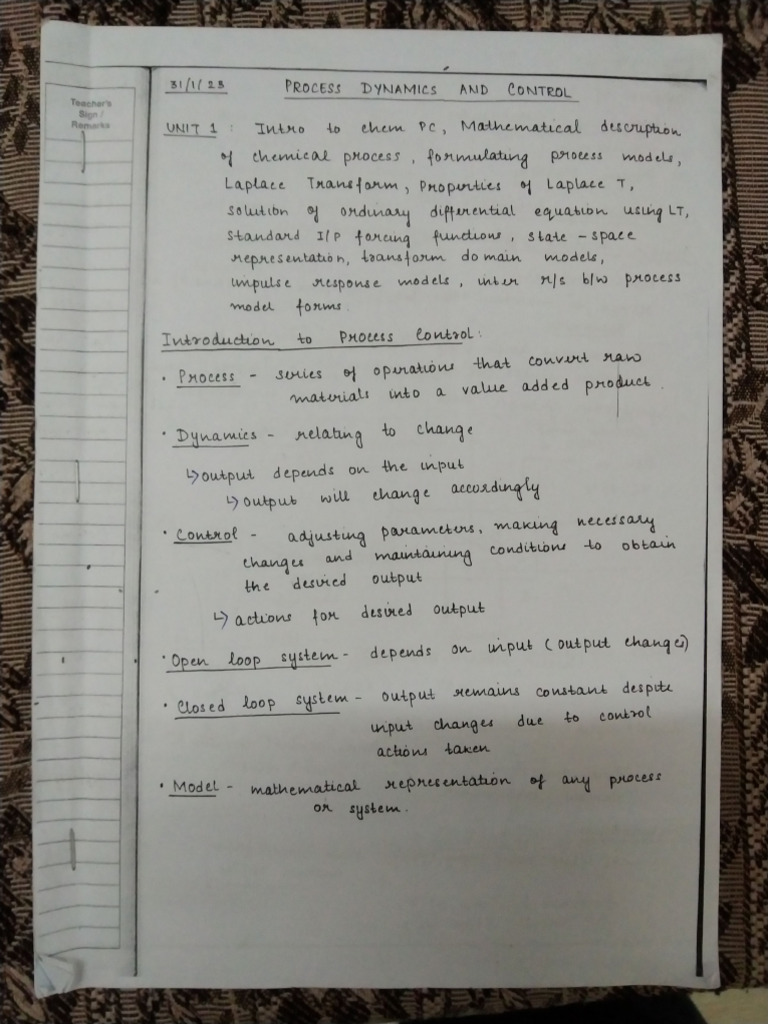 Teacher's
Sign /
Remarks
31/1/23 PROCESS DYNAMICS AND CONTROL
UNIT 1 : Intro to chem PC, Mathematical description
of chemical process, formulating process models,
Laplace Transform, Properties of Laplace T,
solution of ordinary differential equation using LT,
standard I/P forcing functions, state - space
representation, transform domain models,
impulse response models, inter r/s b/w process
model forms.
Introduction to Process Control:
• Process - series of operations that convert raw
materials into a value added product.
• Dynamics - relating to change
↳ output depends on the input
↳ output will change accordingly
• Control - adjusting parameters, making necessary
changes and maintaining conditions to obtain
the desired output
↳ actions for desired output
• Open loop system - depends on input (output changes)
• Closed loop system - output remains constant despite
input changes due to control
actions taken
• Model - mathematical representation of any process
or system.